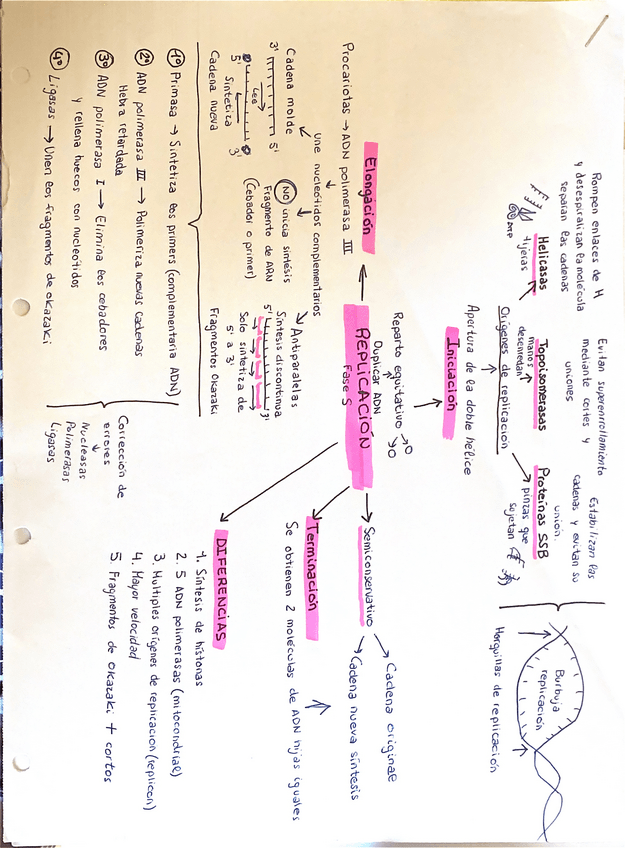 REPLICACIÓN
Fase S
Duplicar ADN
Reparto equitativo
Iniciación
Apertura de la doble hélice
Orígenes de replicación
Helicasas
tijeras
Rompen enlaces de H
y desespiralizan la molécula
separan las cadenas
Topoisomerasas
manos
desenredan
Evitan superenrollamiento
mediante cortes y
uniones
Proteínas SSB
pinzas que
sujetan
Estabilizan las
cadenas y evitan su
unión.
Burbuja
replicación
Horquillas de replicación
Semiconservativo
Cadena original
Cadena nueva síntesis
Terminación
Se obtienen 2 moléculas de ADN hijas iguales
DIFERENCIAS
1. Síntesis de histonas
2. 5 ADN polimerasas (mitocondrial)
3. Multiples orígenes de replicacion (replicon)
4. Mayor velocidad
5. Fragmentos de okazaki + cortos
Elongación
Procariotas → ADN polimerasa III
une nucleótidos complementarios
Cadena molde
3' 5'
Lee
5' 3'
Sintetiza
Cadena nueva
(NO) inicia síntesis
Fragmento de ARN
(Cebador o primer)
Antiparalelas
Síntesis discontinua
5' 3'
Solo sintetiza de
5' a 3'
Fragmentos Okazaki
1º Primasa → Sintetiza los primers (complementaria ADN)
2º ADN polimerasa III → Polimeriza nuevas cadenas
Hebra retardada
3º ADN polimerasa I → Elimina los cebadores
y rellena huecos con nucleótidos
4º Ligasas → Unen los fragmentos de okazaki
Corrección de
errores
Nucleasas
Polimerasas
Ligasas